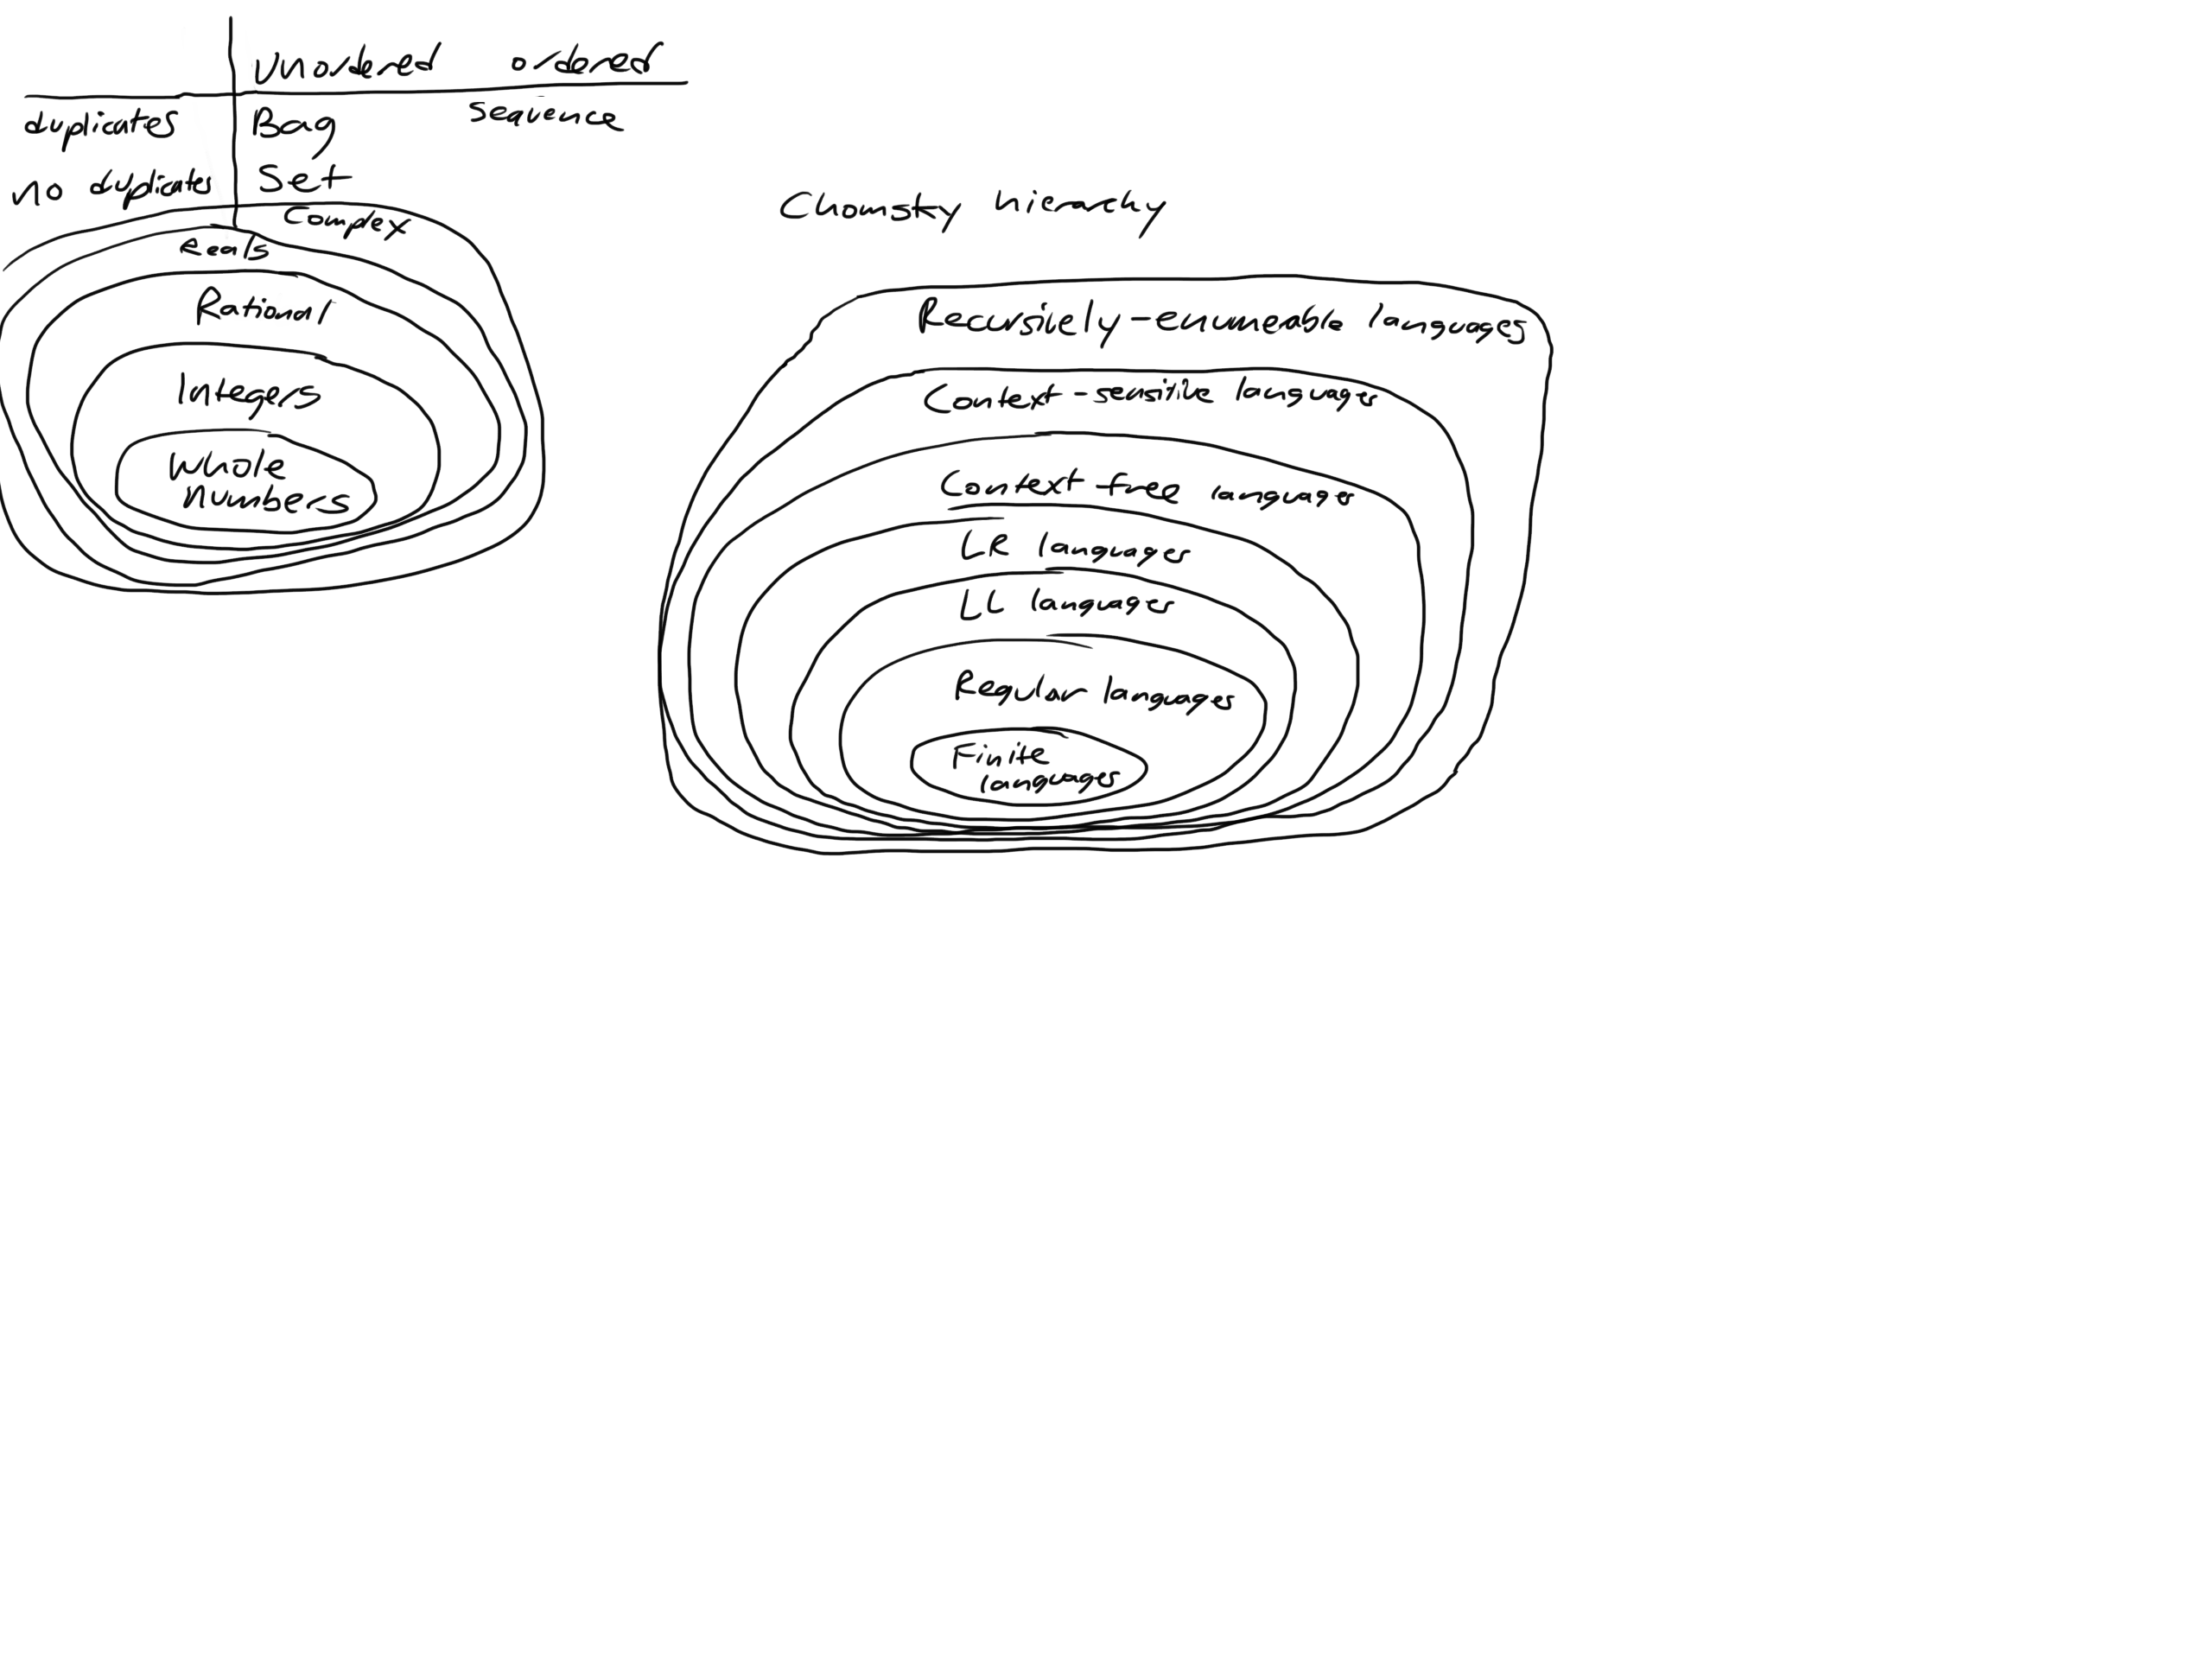 Unordered ordered
duplicates Bag sequence
no duplicates Set
Complex
Reals
Rational
Integers
Whole
numbers
Chomsky hierarchy
Recursively-enumeable languages
Context-sensitive languages
Context-free languages
LR languages
LL languages
Regular languages
Finite
languages